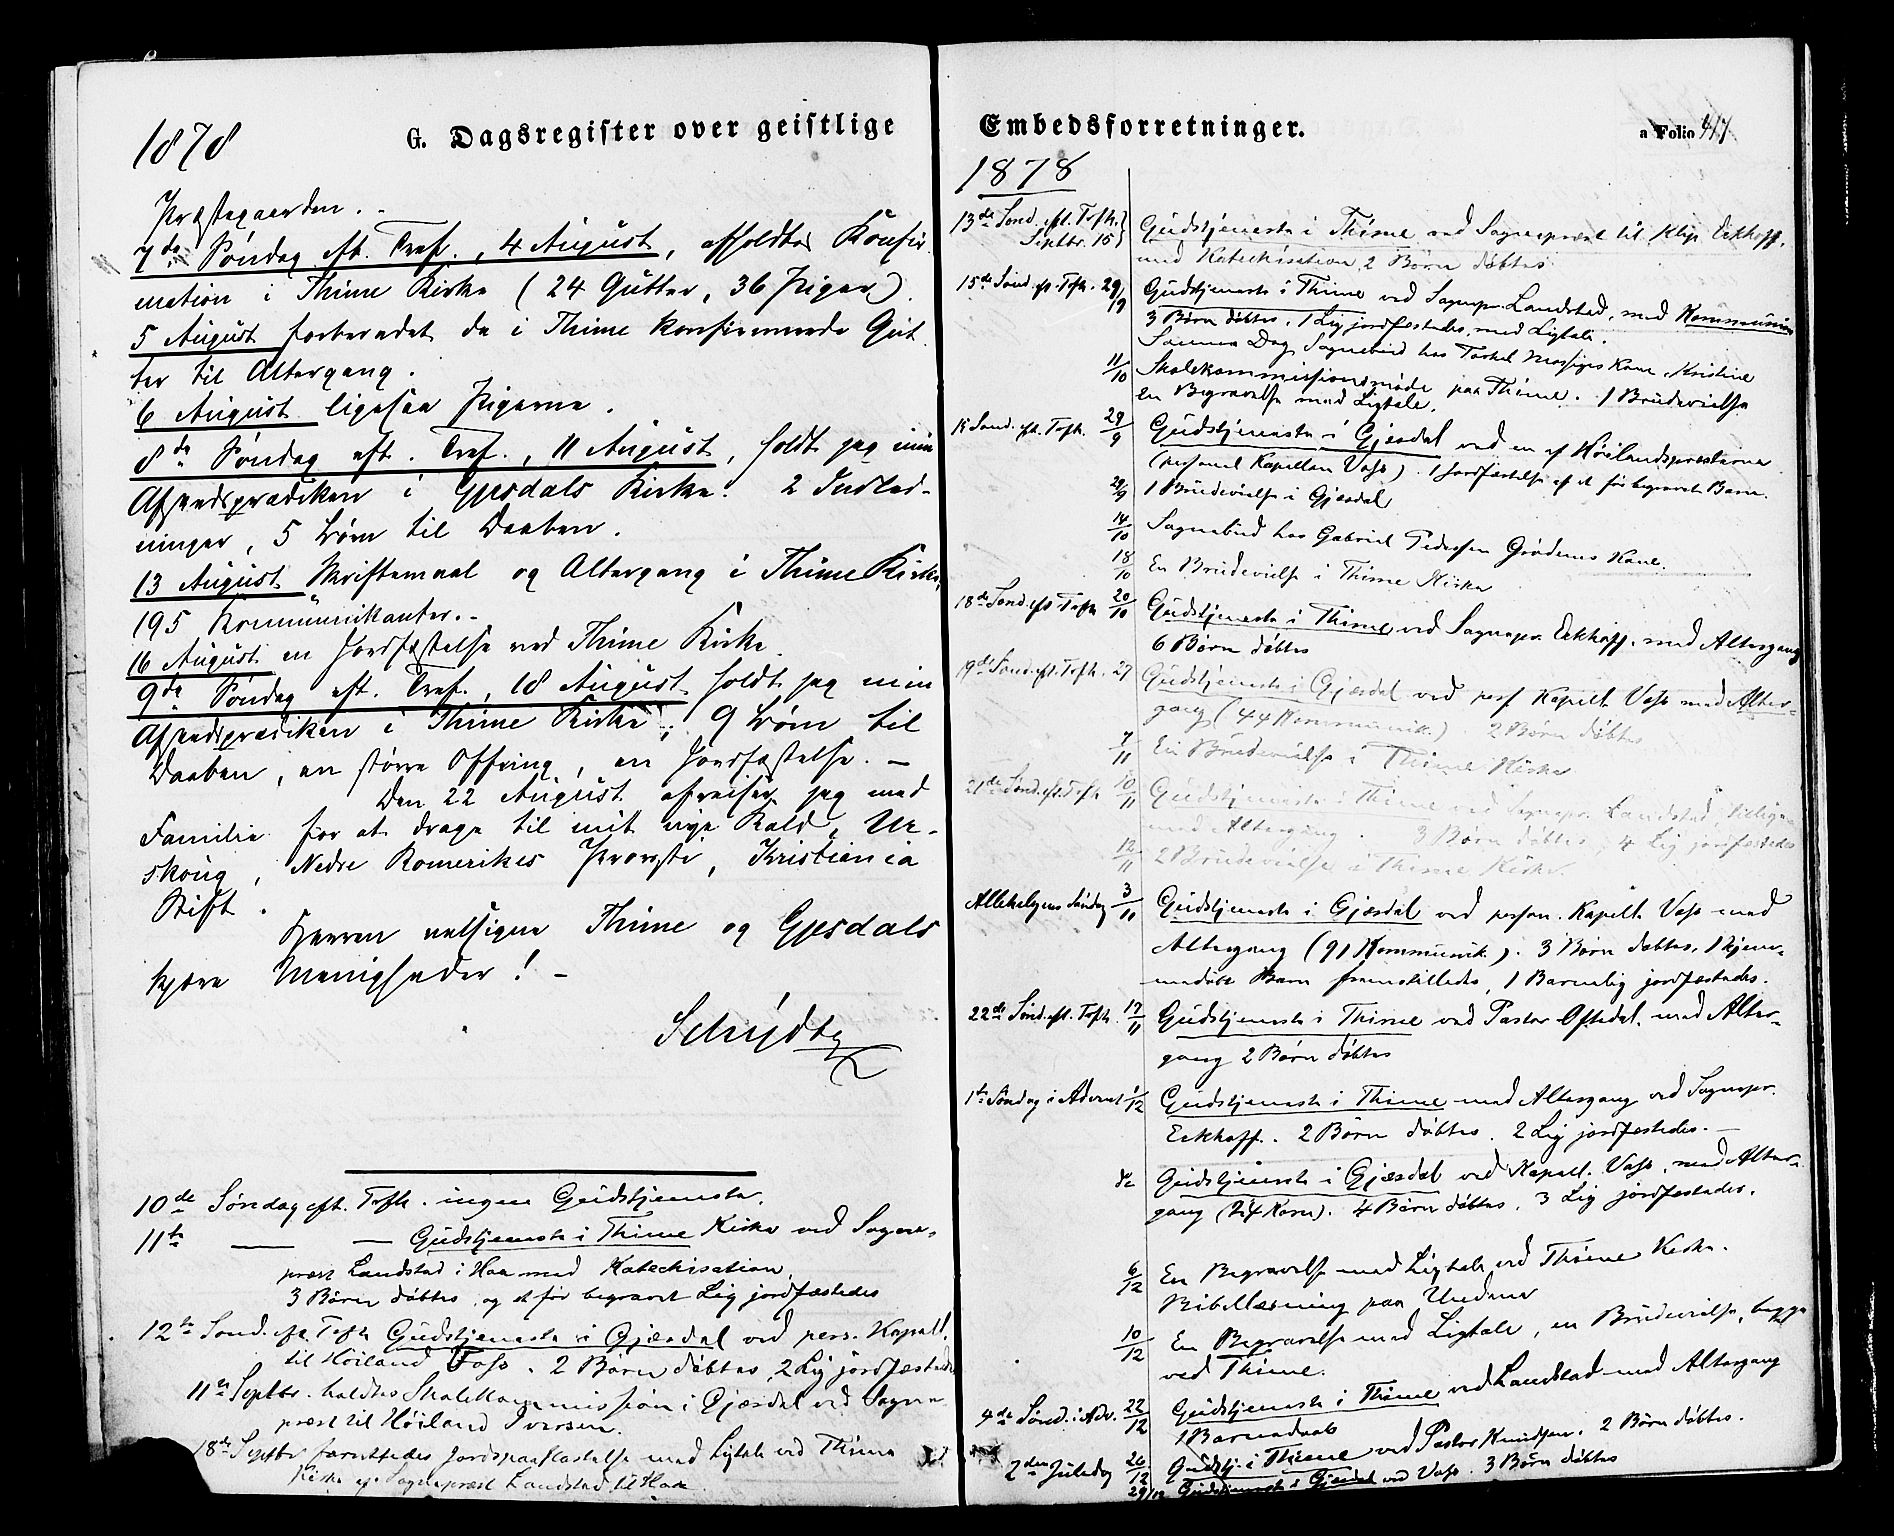 1878
G. Dagsregister over geistlige
Præstegaarden. -
7de Søndag eft. Tref., 4 August, afholdtes Konfir-
mation i Thime Kirke (24 Gutter, 36 Piger).
5 August forberedet de i Thime konfirmerede Gut-
ter til Altergang.
6 August ligesaa Pigerne.
8de Søndag eft. Tref., 11 August, holdt jeg min
Afskedsprædiken i Gjesdals Kirke. 2 Indled-
ninger, 5 Børn til Daaben.
13 August Skriftemaal og Altergang i Thime Kirke,
195 Kommunikanter. -
16 August en Jordfæstelse ved Thime Kirke.
9de Søndag eft. Tref., 18 August holdt jeg min
Afskedsprædiken i Thime Kirke, 9 Børn til
Daaben, en större Offring, en Jordfæstelse. —
Den 22 August afreiser jeg med
Familie for at drage til mit nye Kald, Ur-
skoug, Nedre Romerikes Provsti, Kristiania
Stift.
Herren velsigne Thime og Gjesdals
kjære Menigheder! -
Schiýdtz
10de Søndag eft. Trefh. ingen Gudstjeneste.
11te — — Gudstjeneste i Thime Kirke ved Sogne-
præst Landstad i Haa med Katechisation
3 Børn døbtes, og et før begravet Lig jordfæstedes
12te Sønd. eft. Trefh Gudstjeneste i Gjæsdal ved pers. Kapell.
til Høiland Vass. 2 Børn døbtes, 2 Lig jordfæstedes
11te Septbr. holdtes Skolekommission i Gjæsdal ved Sogne-
præst til Høiland Iversen.
18de Septbr forrettedes Jordspaakastelse med Ligtale ved Thime
Kirke af Sognepræst Landstad til Haa
Embedsforretninger.
a Folio 417
1878
13de Sønd. eft. Trefh. Septbr. 15 Gudstjeneste i Thime ved Sognepræst til Klep Eckhoff,
med Katechisation, 2 Børn døbtes
15de Sønd. eft. Trefh. 29/9 Gudstjeneste i Thime ved Sognepr. Landstad, med Kommunion
3 Børn døbtes, 1 Lig jordfæstedes med Ligtale.
Samme Dag Sognebud hos Torkel Mossiges Kone Kristine
11/10 Skolekommissionsmøde paa Thime. 1 Brudevielse
en Begravelse med Ligtale.
15 Sønd. eft. Trefh. 29/9 Gudstjeneste i Gjæsdal ved en af Høilandspresterne
(personel Kapellan Vass). 1 Jordfæstelse af et før begravet Barn.
29/9 1 Brudevielse i Gjæsdal
14/10 Sognebud hos Gabriel Pedersen Grødems Kone.
18/10 En Brudevielse i Thime Kirke
18de Sønd. eft. Trefh 20/10 Gudstjeneste i Thime ved Sognepr. Eckhoff, med Altergang
6 Børn døbtes
19de Sønd. eft. Trefh. 27 Gudstjeneste i Gjæsdal ved pers Kapell. Vass med Alter-
gang (44 Kommunik.). 2 Børn døbtes
7/11 En Brudevielse i Thime Kirke
21de Sønd. eft. Trefh 10/11 Gudstjeneste i Thime ved Sognepr. Landstad,
med Altergang. 3 Børn døbtes, 4 Lig jordfæstedes
12/11 2 Brudevielse i Thime Kirke.
Allehelgens Søndag 3/11 Gudstjeneste i Gjæsdal ved person. Kapell. Vass med
Altergang (91 Kommunik.). 3 Børn døbtes, 1 hjem-
medøbt Barn fremstilledes, 1 Barnelig jordfæstedes.
22de Sønd. eft. Trefh. 17/11 Gudstjeneste i Thime ved Pastor Oftedal, med Alter-
gang 2 Børn døbtes
1te Søndag i Advent 1/12 Gudstjeneste i Thime med Altergang ved Sognepr.
Eckhoff. 2 Børn døbtes. 2 Lig jordfæstedes. —
do Gudstjeneste i Gjæsdal ved Kapell. Vass, med Alter-
gang (24 Kom). 4 Børn døbtes, 3 Lig jordfæstedes.
6/12 En Begravelse med Ligtale ved Thime Kirke.
Bibellæsning paa Undem
10/12 En Begravelse med Ligtale, en Brudevielse, begge
ved Thime.
4de Sønd. i Adv. 22/12 Gudstjeneste i Thime ved Landstad med Altergang
1 Barnedaab
2den Juledag 26/12 Gudstj. i Thime ved Pastor Knudsen. 2 Børn døbtes.
29/12 Gudstjeneste i Gjæsdal ved Vass. 3 Børn døbtes